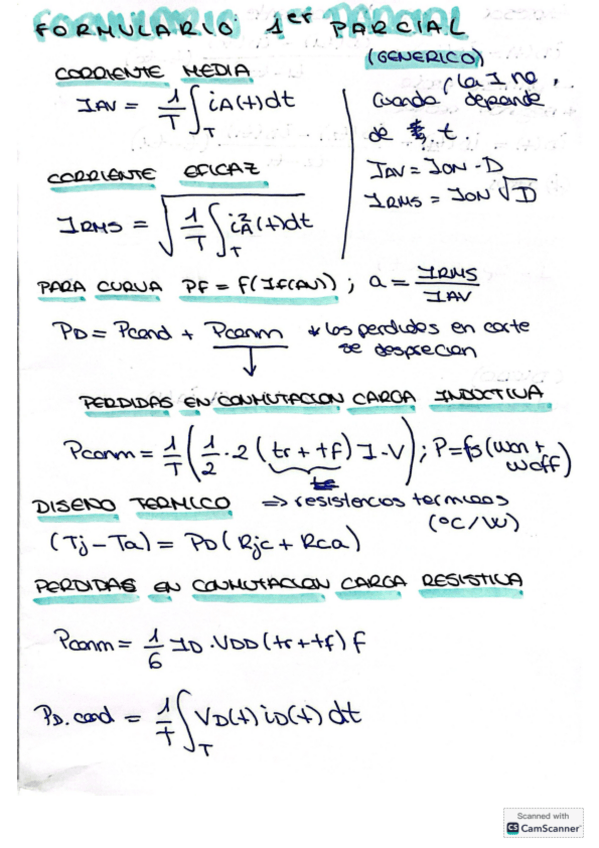 FORMULARIO 1er PARCIAL
(GENERICO)
CORRIENTE MEDIA
IAV = 1/T ∫T iA(t)dt
Cuando (la I no
depende
de t.
IAV = ION · D
IRMS = ION √D
CORRIENTE EFICAZ
IRMS = √(1/T ∫T iA²(t)dt)
PARA CURVA PF = f(IF(AV)) ; a = IRMS/IAV
PD = Pcond + Pconm * las perdidas en corte
se desprecian
↓
PERDIDAS EN CONMUTACION CARGA INDUCTIVA
Pconm = 1/T (1/2 · 2 (tr + tf) I · V) ; P = fs (Won +
Woff)
DISEÑO TERMICO ⇒ resistencias termicas
(ºC/W)
(Tj - Ta) = PD (Rjc + Rca)
PERDIDAS EN CONMUTACION CARGA RESISTIVA
Pconm = 1/6 ID · VDD (tr + tf) f
PD.cond = 1/T ∫T VD(t) iD(t) dt
Scanned with
CS CamScanner